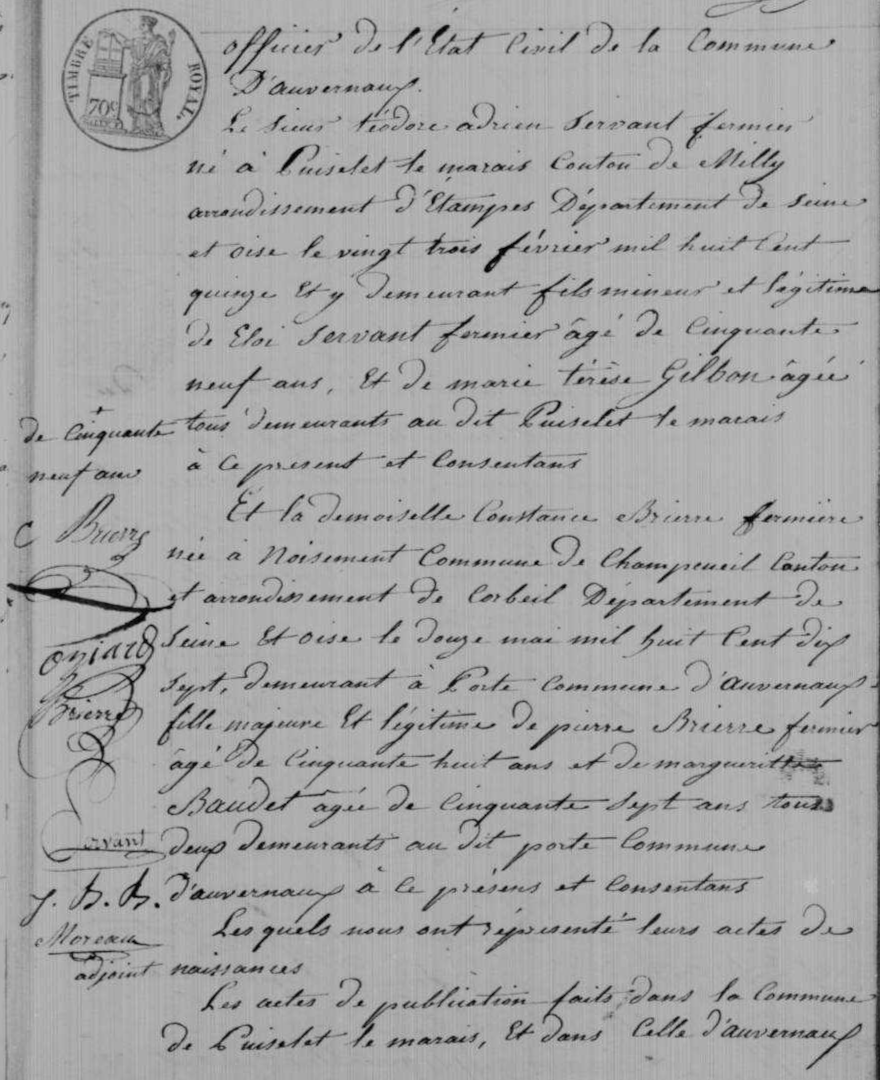 TIMBRE ROYAL.
70c
officier de l'État Civil de la Commune
D'auvernaux.
Le sieur téodore adrien Servant fermier
né à Puiselet le marais Conton de Milly
arrondissement d'Étampes Département de Seine
et oise le vingt trois février mil huit Cent
quinze Et y demeurant fils mineur et légitime
de Eloi Servant fermier âgé de Cinquante
neuf ans, Et de marie térèse Gilbon âgée
tous demeurants au dit Puiselet le marais
à Ce present et Consentans
Et la demoiselle Constance Brierre fermière
née à Noisement Commune de Champcueil Canton
et arrondissement de Corbeil Département de
Seine Et oise le douze mai mil huit Cent dix
sept, demeurant à Porte Commune d'auvernaux
fille majeure Et légitime de pierre Brierre fermier
âgé de Cinquante huit ans et de margueritte
Baudet âgée de Cinquante Sept ans tous
deux demeurants au dit porte Commune
d'auvernaux à Ce présens et Consentans
Les quels nous ont représenté leurs actes de
naissances
Les actes de publication faits dans la Commune
de Puiselet le marais, Et dans Celle d'auvernaux
+
de Cinquante
neuf ans
C Brierre
Brierre
Servant
J. B. B.
Moreau
adjoint